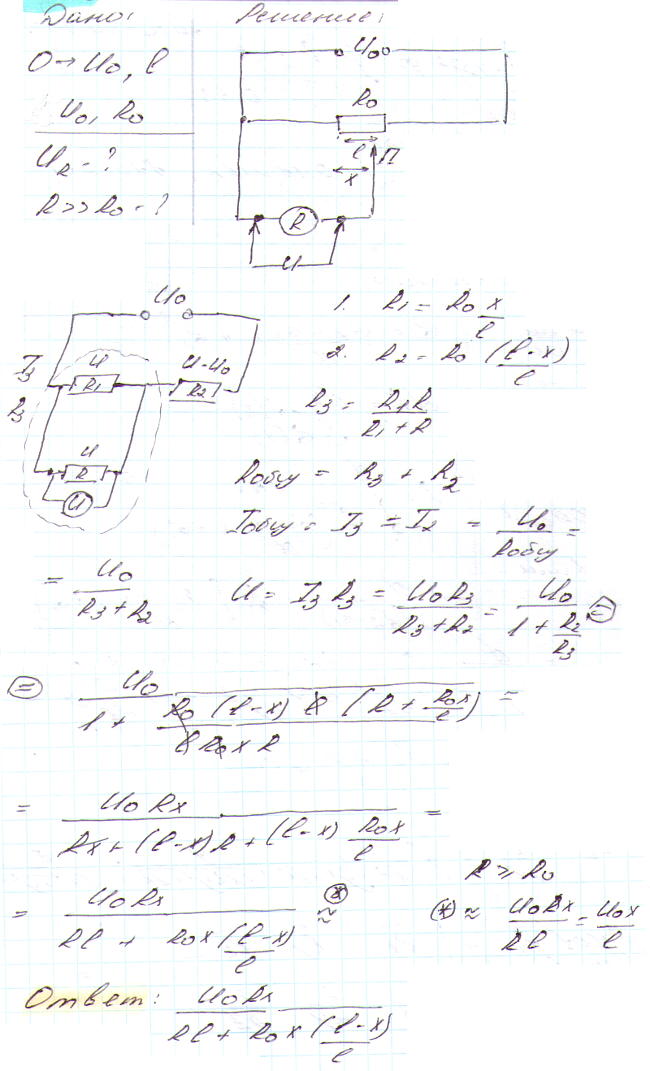 Дано: Решение:
0→U₀, l
U₀, R₀
U_R - ?
R>>R₀ - ?
U₀
R₀
l
x
П
R
U
U₀
I₃ U U-U₀
R₁ R₂
R₃
U
R
U
1. R₁ = R₀ x/l
2. R₂ = R₀ (l-x)/l
R₃ = R₁R/(R₁+R)
Rобщ = R₃ + R₂
Iобщ = I₃ = I₂ = U₀/Rобщ =
= U₀/(R₃+R₂) U = I₃R₃ = U₀R₃/(R₃+R₂) = U₀/(1+R₂/R₃) ⊜
⊜ U₀/(1 + R₀ (l-x) l (R + R₀x/l)/(l R₀ x R)) =
= U₀Rx/(Rx + (l-x)R + (l-x) R₀x/l) =
R ≫ R₀
= U₀Rx/(Rl + R₀x (l-x)/l) ≈(*) (*) ≈ U₀Rx/Rl = U₀x/l
Ответ: U₀Rx/(Rl + R₀x (l-x)/l)